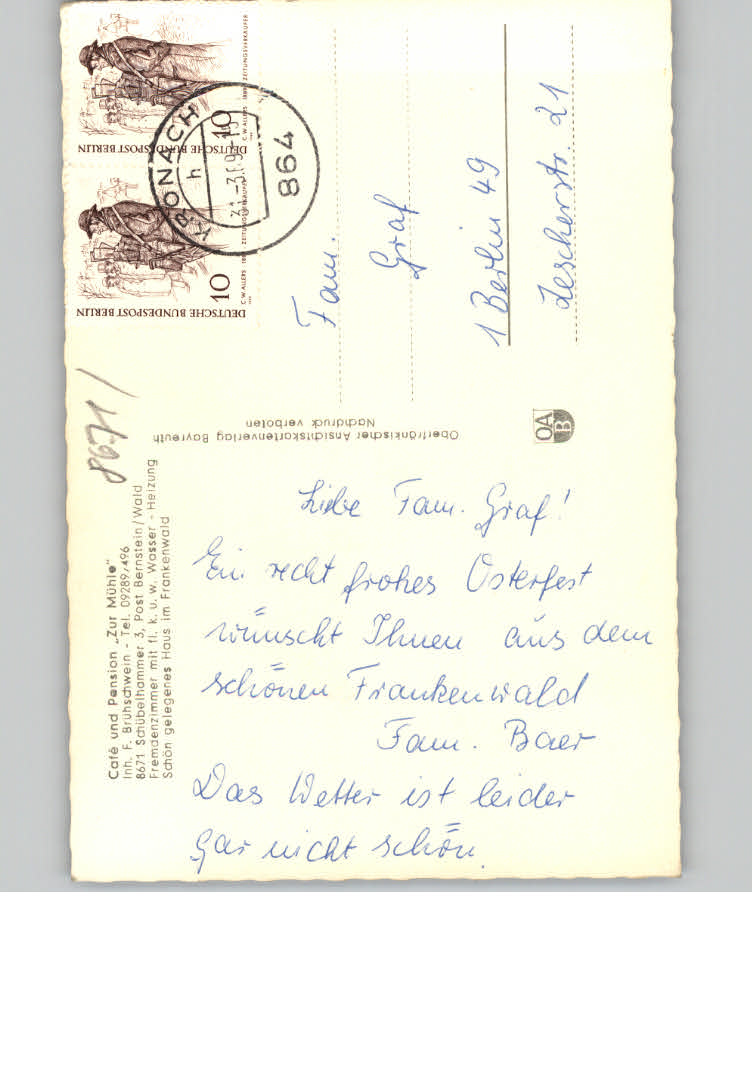 Café und Pension „Zur Mühle"
Inh. F. Brühschwein - Tel. 09289/496
8671 Schübelhammer 3, Post Bernstein/Wald
Fremdenzimmer mit fl. k. u. w. Wasser - Heizung
Schön gelegenes Haus im Frankenwald
8671/
Liebe Fam. Graf!
Ein recht frohes Osterfest
wünscht Ihnen aus dem
schönen Frankenwald
Fam. Baer
Das Wetter ist leider
gar nicht schön.
Oberfränkischer Ansichtskartenverlag Bayreuth
Nachdruck verboten
OA
B
DEUTSCHE BUNDESPOST BERLIN
10
C.W. ALLERS 1889 ZEITUNGSVERKÄUFER
DEUTSCHE BUNDESPOST BERLIN
10
C.W. ALLERS 1889 ZEITUNGSVERKÄUFER
KRONACH
h
864
Fam.
Graf
1 Berlin 49
Zescherstr. 21